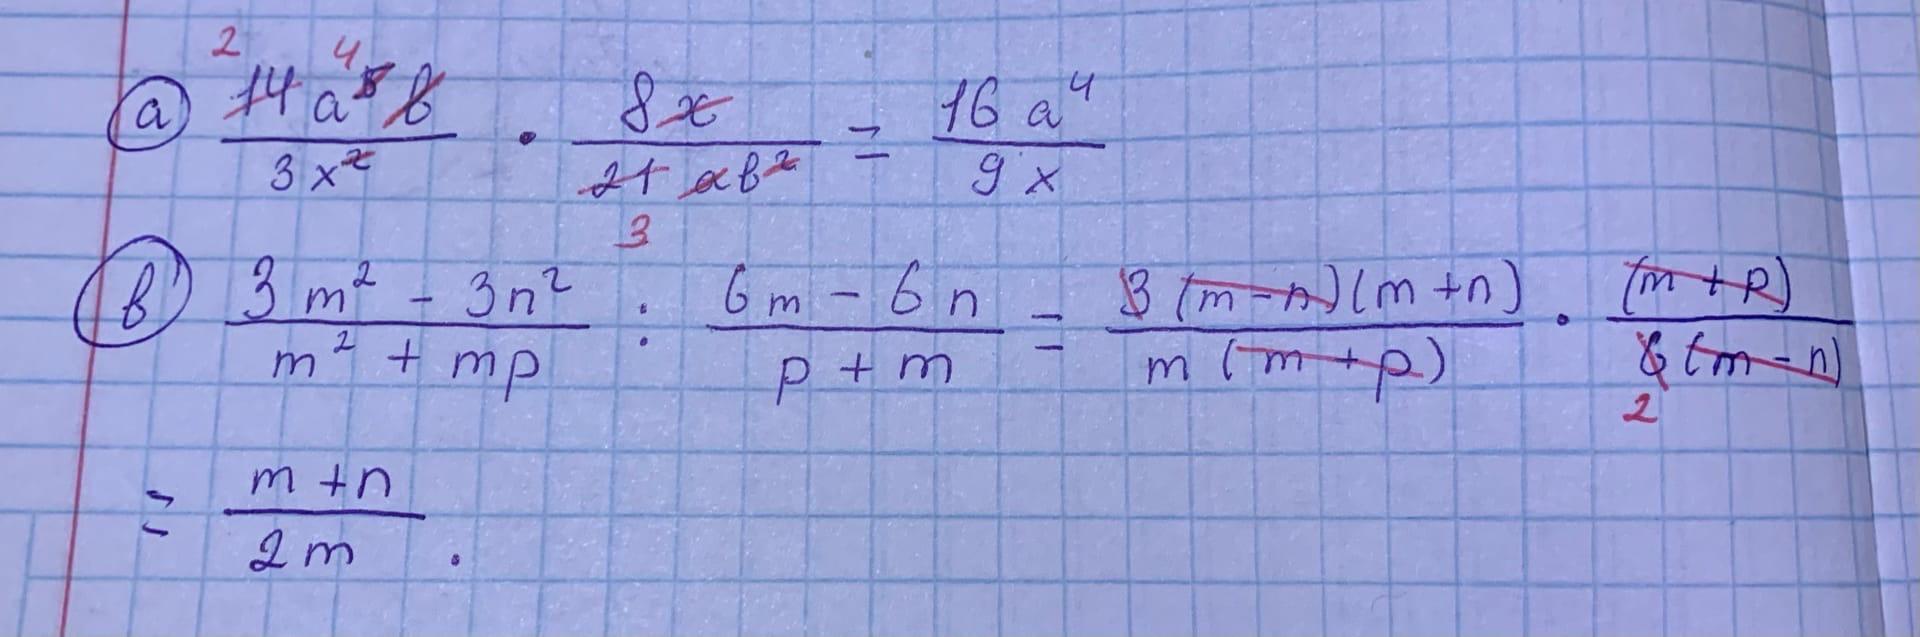 a) 14a⁵b / 3x² · 8x / 21ab² = 16a⁴ / 9x
2 4 3
b) 3m² - 3n² / m² + mp : 6m - 6n / p + m = 3(m-n)(m+n) / m(m+p) · (m+p) / 6(m-n)
2
= m+n / 2m .